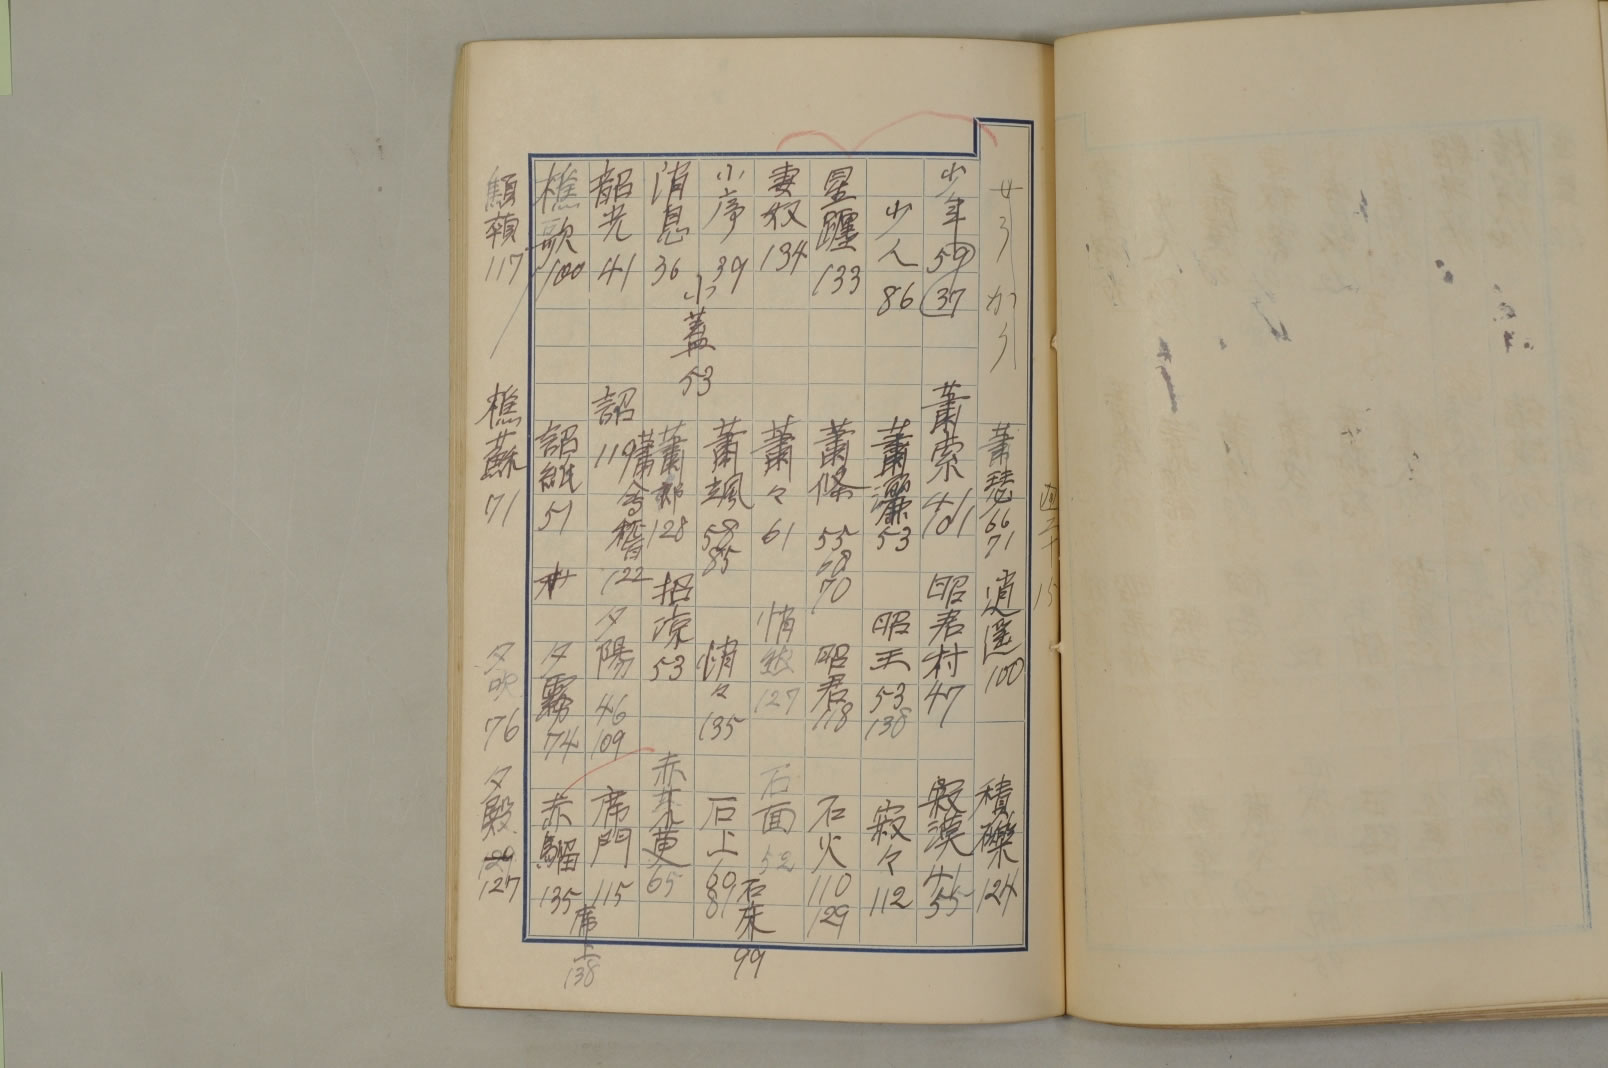 せうかう
蕭瑟 66 71
逍遥 100
積礫 124
少年 59 37
蕭索 41 101
昭君村 47
寂漠 41 55
少人 86
蕭灑 53
昭王 53 138
寂々 112
星躔 133
蕭條 55 68 70
昭君 118
石火 110 129
妻奴 134
蕭々 61
悄然 127
石面 52
小序 39
小蓋 53
蕭颯 58 85
悄々 135
石上 69 81
石床 99
消息 36
蕭郎 128
招涼 53
赤茱萸 65
韶光 41
詔 119
蕭會稽 122
夕陽 46 109
席門 115
席上 138
樵歌 100
詔紙 51
夕霧 74
赤騮 135
117
樵蘇 71
夕吹 76
夕殿 127